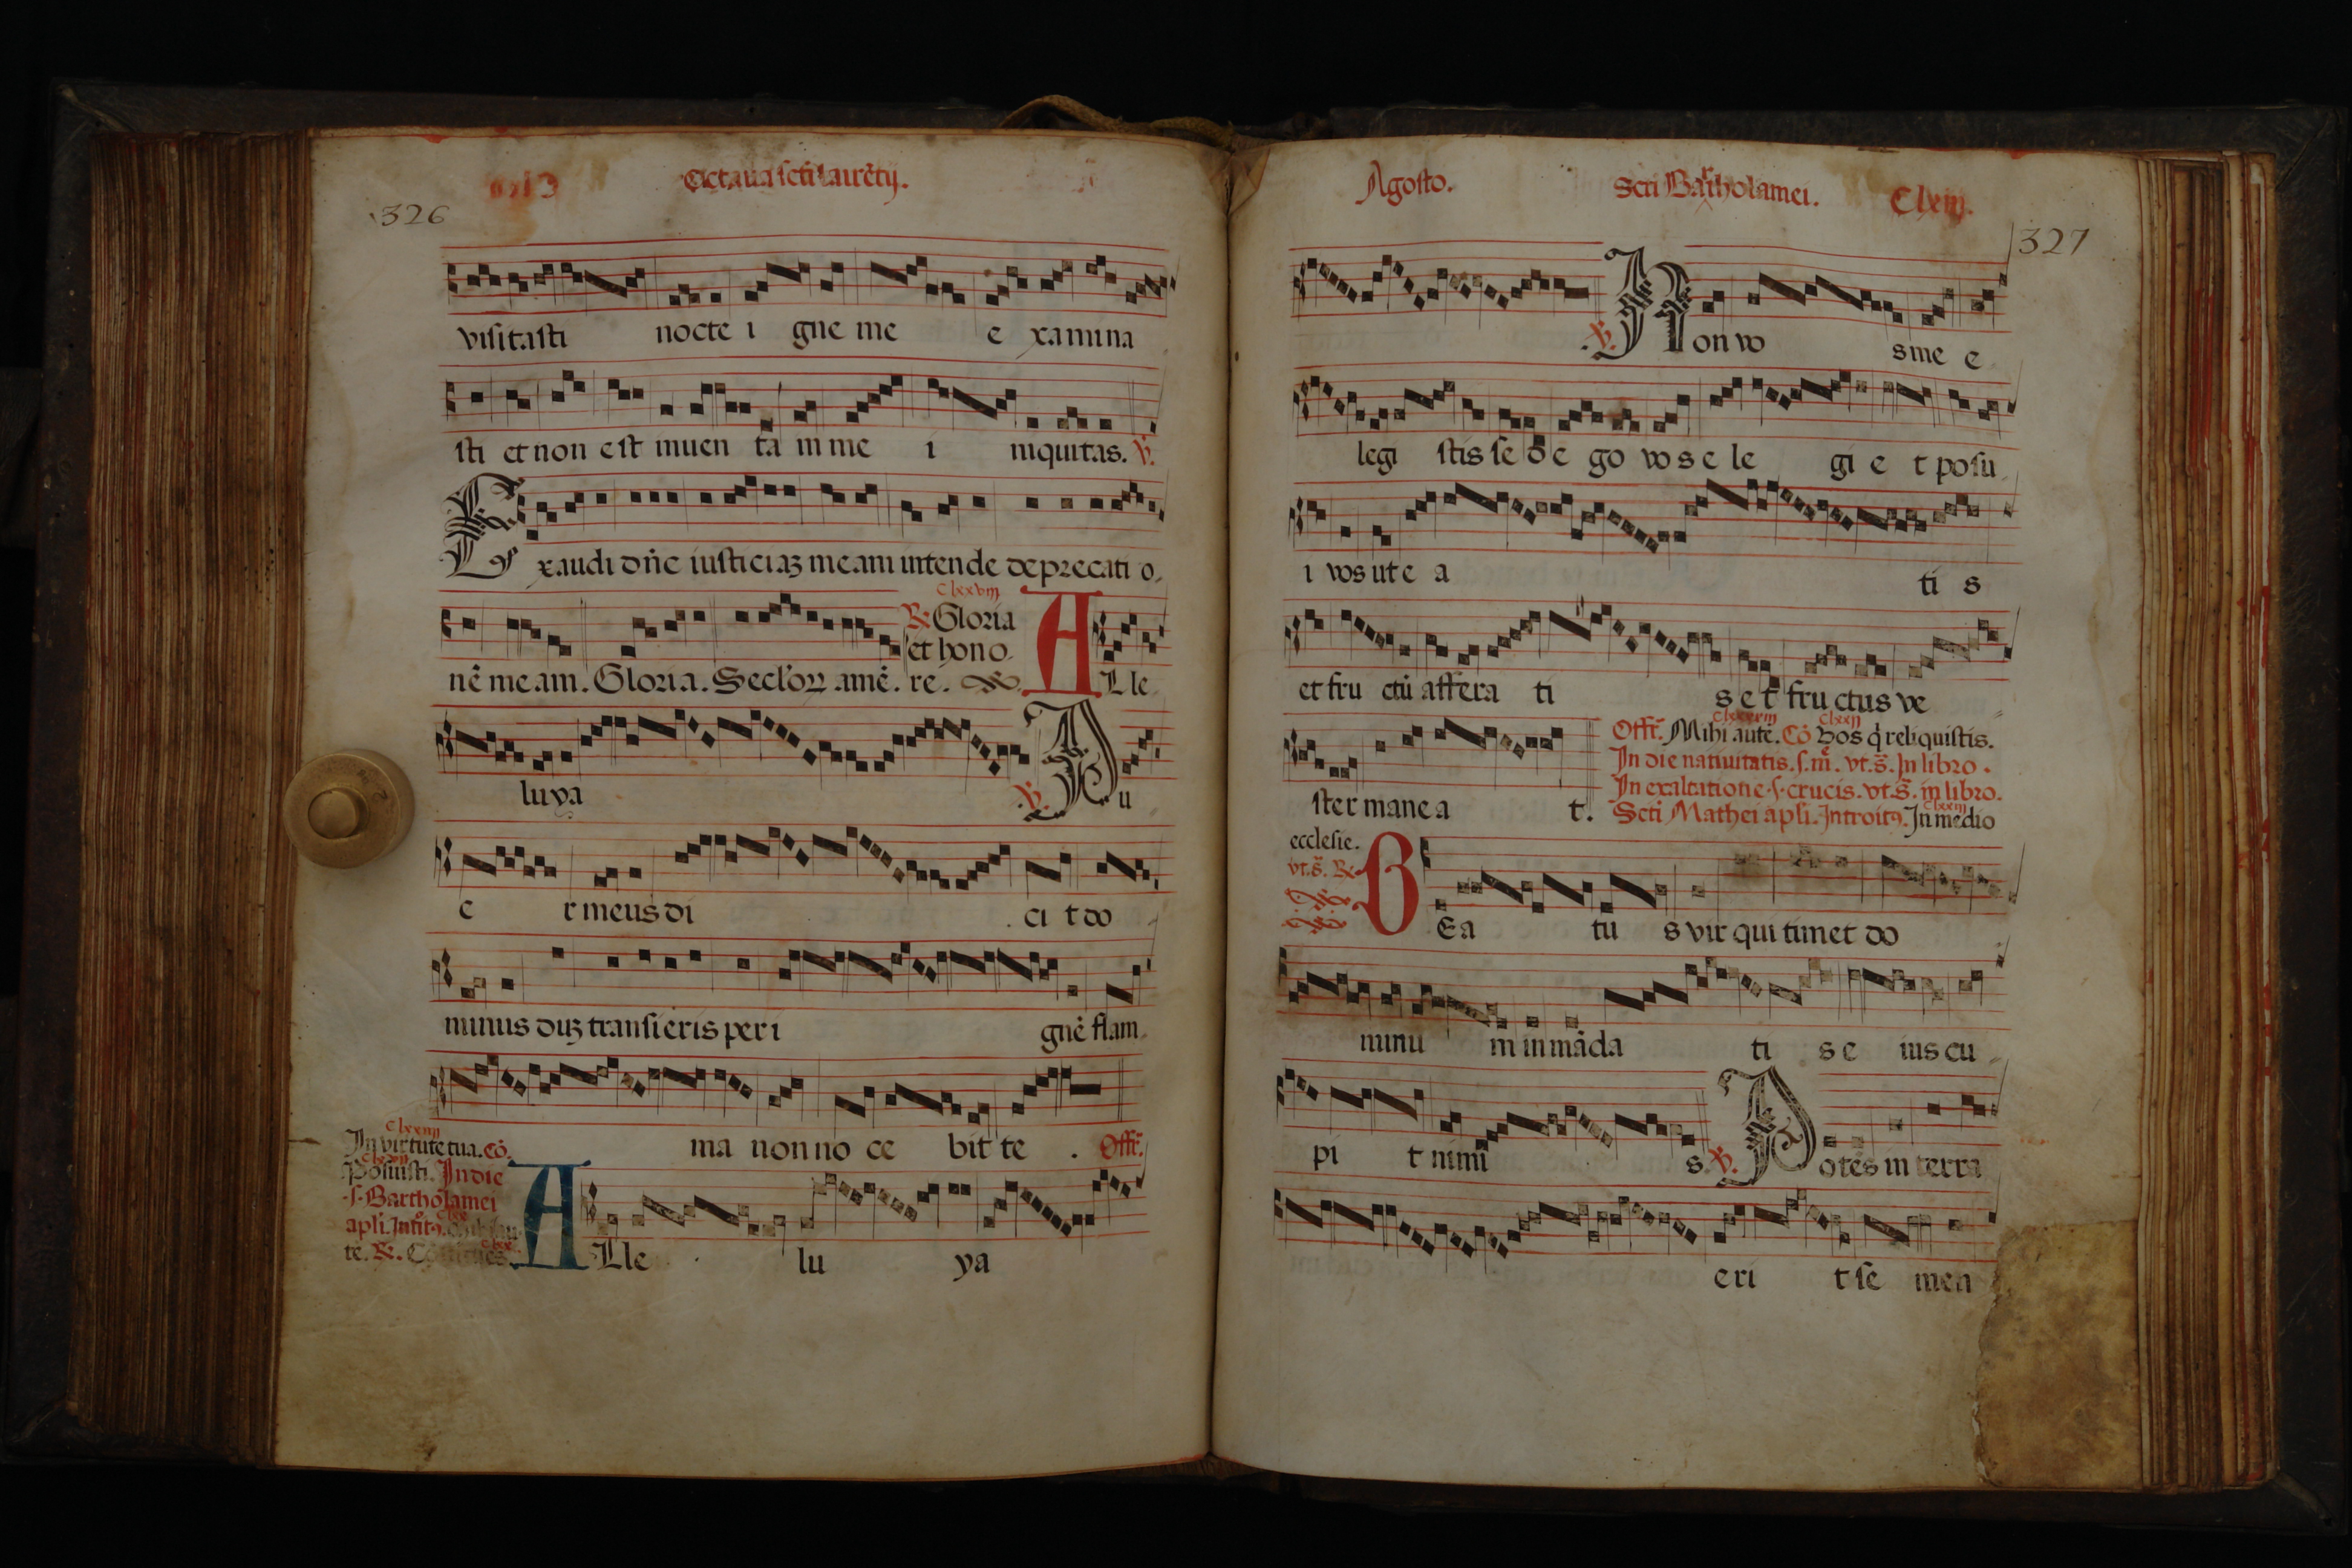 Octaua scti laurẽtij.
326
visitasti nocte i gne me e xamina
sti et non est inuen ta in me i niquitas. ℣.
Exaudi dñe iusticiaʒ meam intende deprecati o
nẽ meam. Gloria. Secloꝝ amẽ. ℟ Gloria et hono re. ALle
clxxviij
luya ℣. Au
e r meus di ci t do
minus duʒ transieris per i gnẽ flam
ma non no ce bit te . Offr̃.
clxxiiij
In virtute tua. Cõ.
Posuisti. In die
.s. Bartholamei
apli. Introitꝰ.
te. ℟.
ALle lu ya
Agosto. Scti Bartholamei. Clxiij.
327
℣. Non vo s me e
legi stis se d e go vos e le gi e t posu
i vos ut e a ti s
et fru ctũ affera ti s e t fructus ve
ster mane a t.
Offr̃. Mihi autẽ. Cõ vos q̇ reliquistis.
In die natiuitatis. s. m̃. vt. s̃. In libro.
In exaltatione .s. crucis. vt. s̃. in libro.
Scti Mathei apli. Introitꝰ. In medio
clxxiij
ecclesie.
vt. s̃. ℟
BEa tu s vir qui timet do
minu m in mãda ti s e ius cu
pi t nimi s. ℣. Potẽs in terra
eri t se men